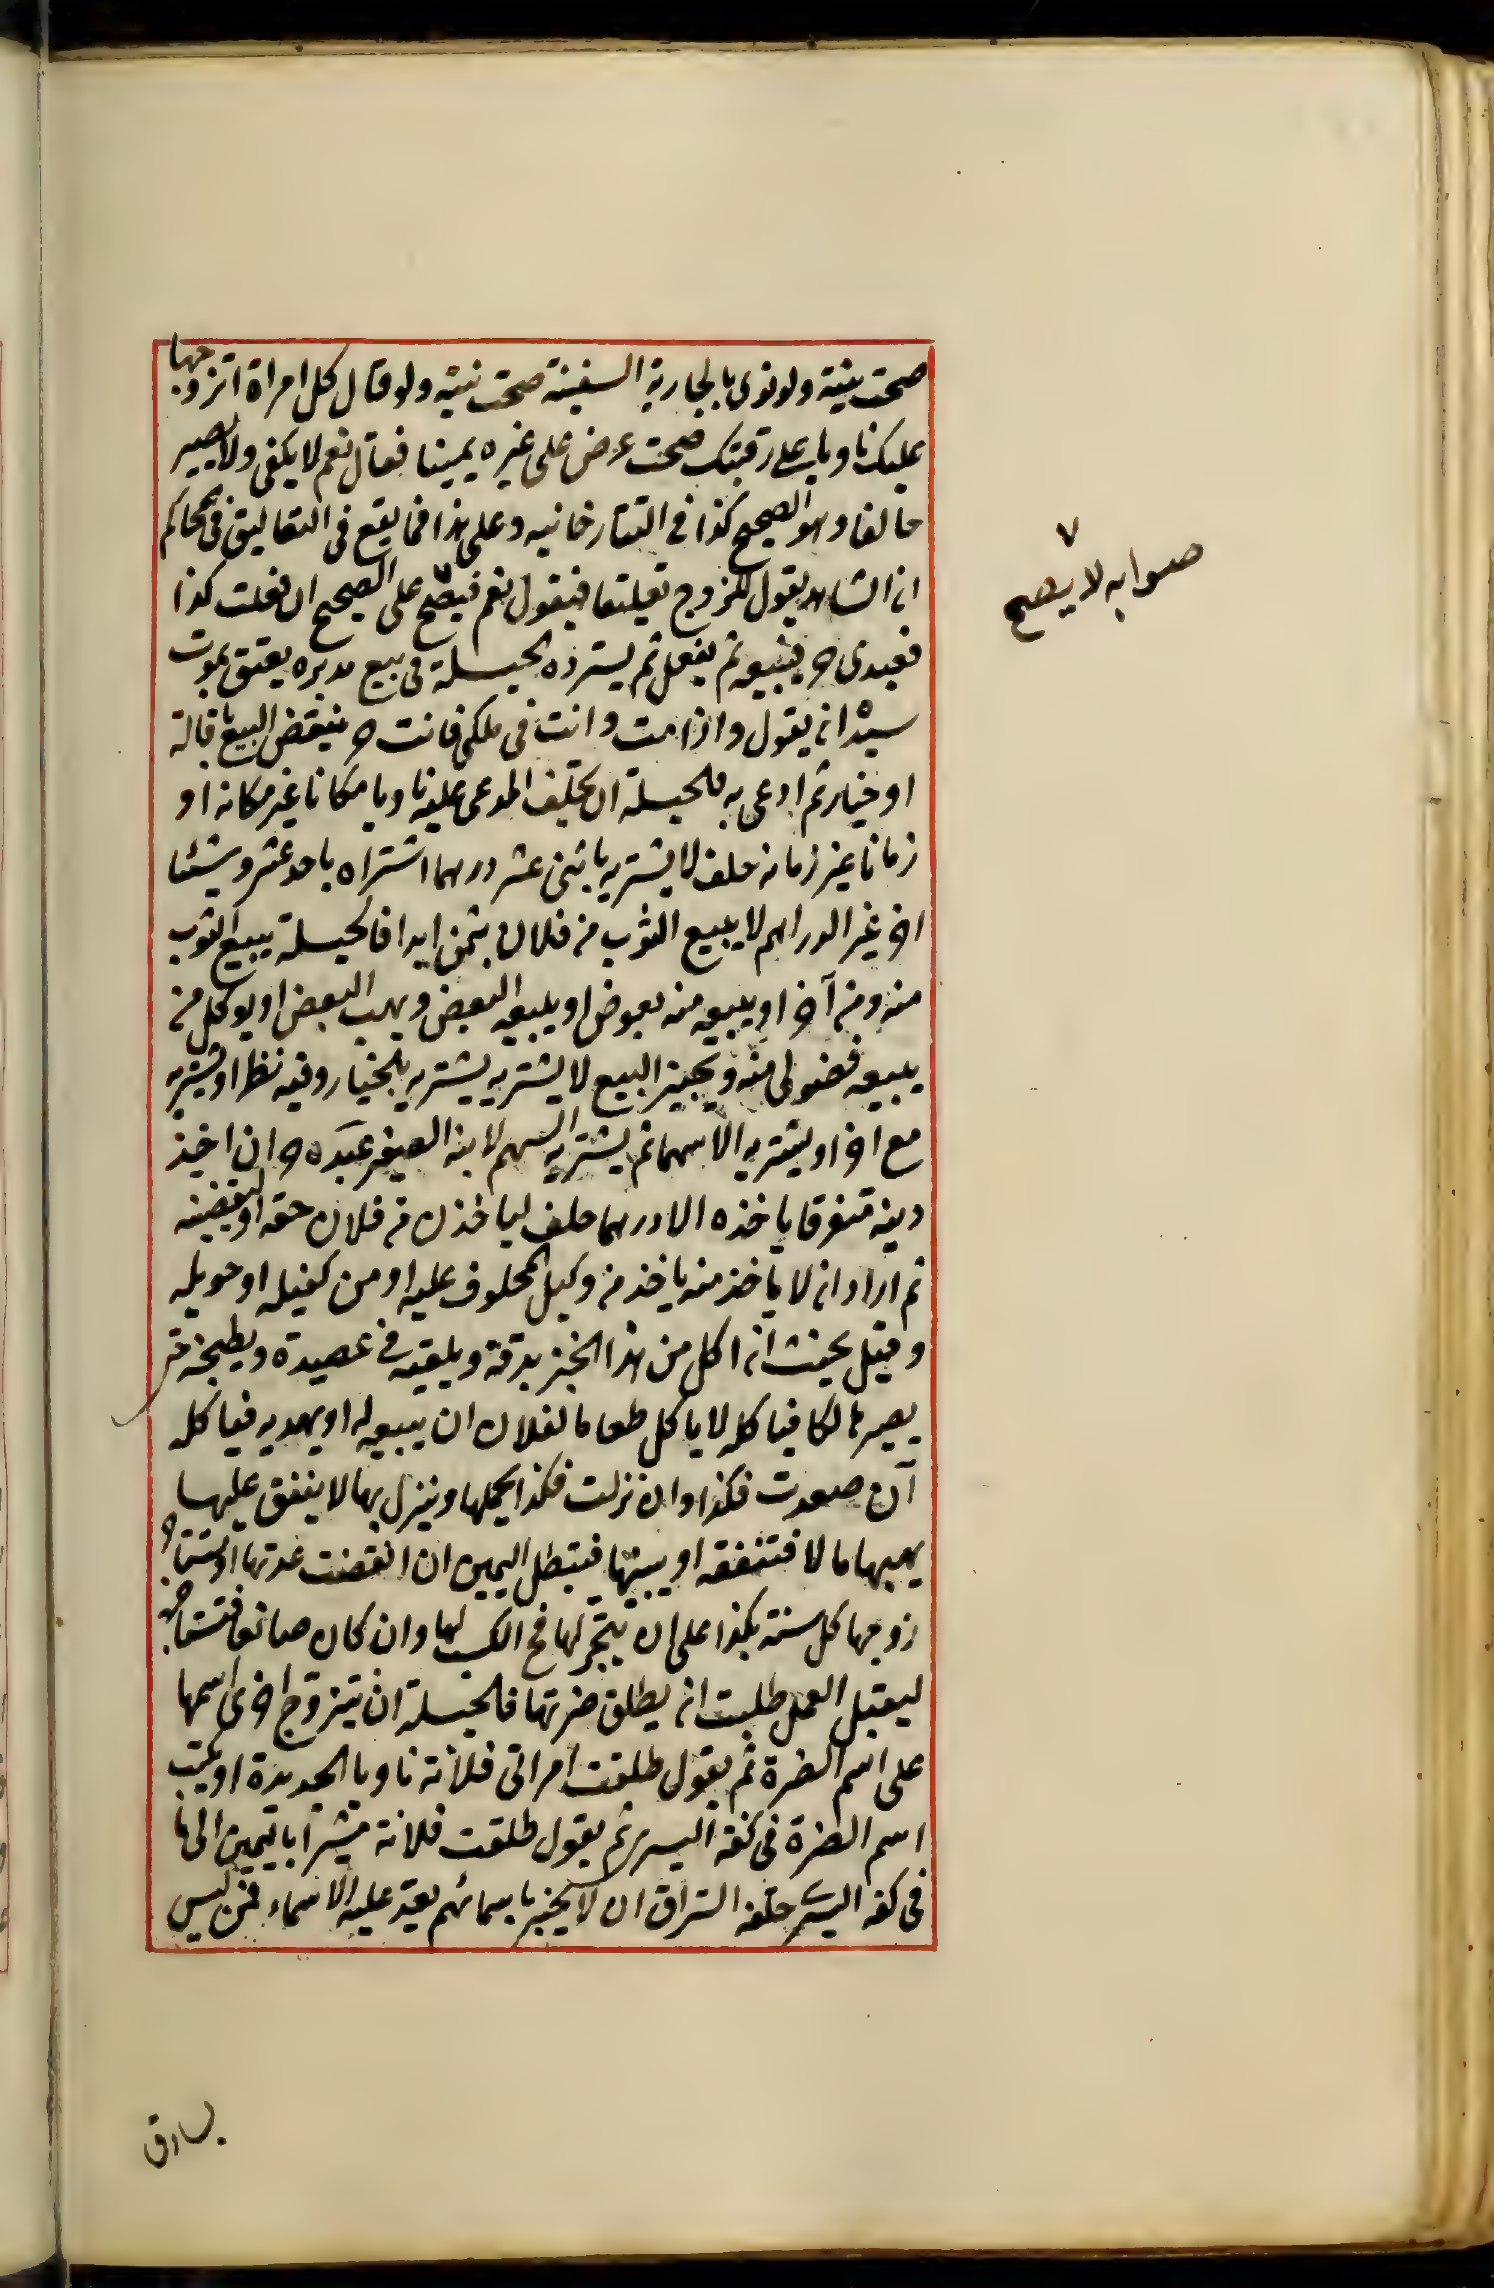 صحت نيته ولو نوى بالجارية السفينة صحت نيته ولو قال كل امراة اتزوجها
عليك ناويا على رقبتك صحت عرض على غيره يمينا فقال نعم لا يكفى ولا يصير
حالفا وهو الصحيح كذا فى التتارخانيه وعلى هذا فما يقع فى التعاليق فى المحاكم
ان الشاهد يقول للزوج تعليقا فيقول نعم فيصح على الصحيح ان فعلت كذا
٧
صوابه لا يصح
فعبدى حر فيبيعه ثم يفعل ثم يسترده الحيلة فى بيع مدبره يعتق بموت
سيده ان يقول واذا مت وانت فى ملكى فانت حر ينتقض البيع باقالة
او خيار ثم ادعى به فالحيلة ان يحلف المدعى عليه ناويا مكانا غير مكانه او
زمانا غير زمانه حلف لا يشتريه باثنى عشر درهما اشتراه باحد عشر وشيئا
اخر غير الدراهم لا يبيع الثوب من فلان بثمن ابدا فالحيلة يبيع الثوب
منه ومن آخر او يبيعه منه بعوض او يبيعه البعض ويهب البعض او يوكل من
يبيعه فضولى منه ويجيز البيع لا يشتريه يشتريه بالخيار وفيه نظر او يشتريه
مع اخر او يشتريه الا سهما ثم يشتريه السهم لابنه الصغير عبده حر ان اخذ
دينه متفرقا ياخذه الا درهما حلف لياخذن من فلان حقه او ليقضينه
ثم اراد ان لا ياخذ منه ياخذ من وكيل المحلوف عليه او من كفيله او حويله
وقيل يحنث ان اكل من هذا الخبز يدقه ويلقيه فى عصيدة ويطبخه حتى
يصير هالكا فياكله لا ياكل طعاما لفلان ان يبيعه له او يهديه فياكله
آن صعدت فكذا وان نزلت فكذا يحملها وينزل بها لا ينفق عليها
يهبها مالا فتنفقه او يبينها فيبطل اليمين ان انقضت عدتها او تستأجر
زوجها كل سنة بكذا على ان يتجر لها فح الكسب لها وان كان صانعا فتستأجره
ليعتقبل العمل طلبت ان يطلق ضرتها فالحيلة ان يتزوج اخرى اسمها
على اسم الضرة ثم يقول طلقت امراتى فلانة ناويا الجديدة او يكتب
اسم الضرة فى كفه اليسرى ثم يقول طلقت فلانة مشيرا باليمين الى ما
فى كفه اليسرى حلفه السراق ان لا يخبر باسمائهم يعد عليه الاسماء فمن ليس
بسارق